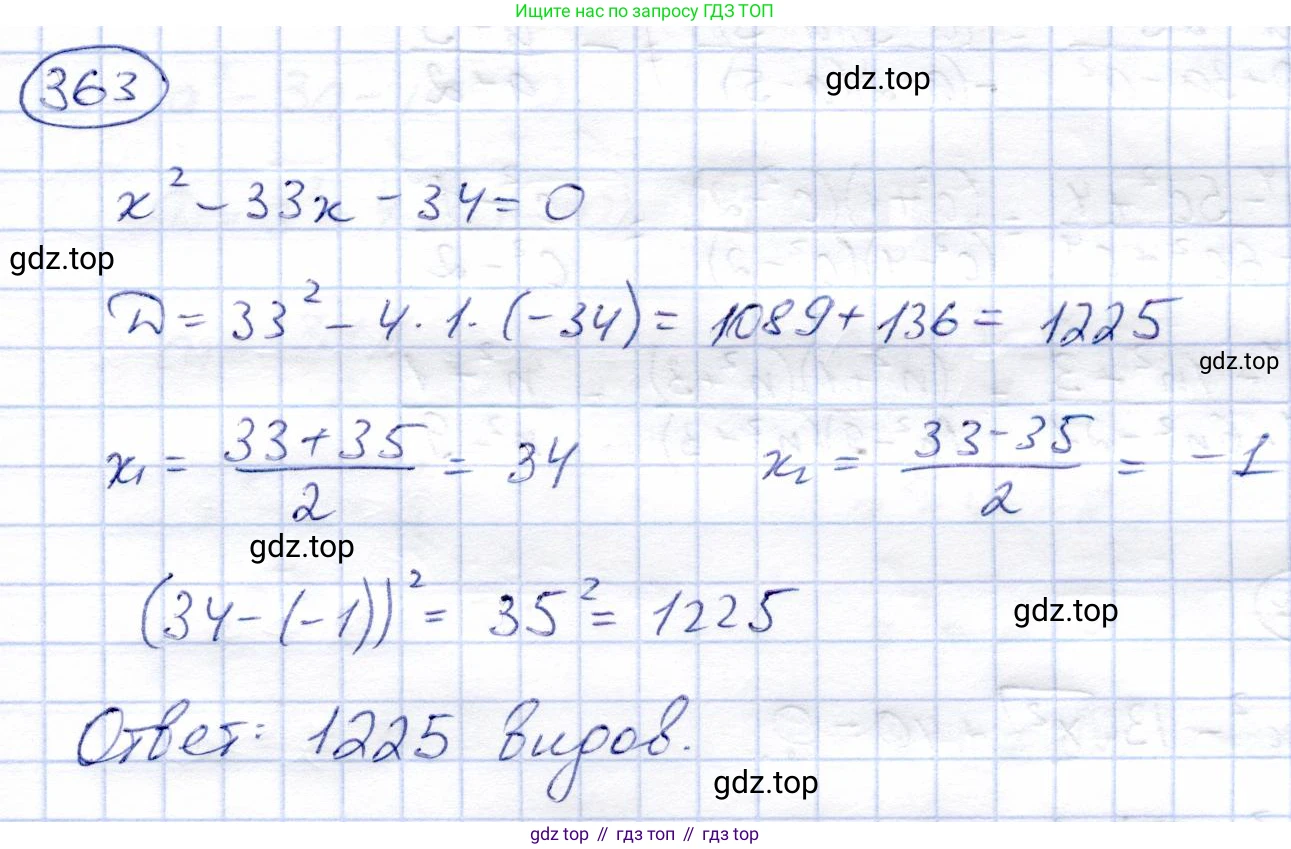 Ищите нас по запросу ГДЗ ТОП
363
gdz.top
x² - 33x - 34 = 0
gdz.top
D = 33² - 4 · 1 · (-34) = 1089 + 136 = 1225
gdz.top
x₁ = (33 + 35)/2 = 34 x₂ = (33 - 35)/2 = -1
gdz.top
(34 - (-1))² = 35² = 1225
gdz.top
Ответ: 1225 видов.
gdz.top
gdz top // гдз топ // гдз top